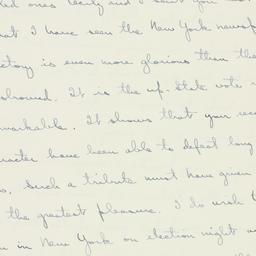 hat I have seen the New York newsp
ctory is even more glorious than the
showed. It is the up-state vote
markable. It shows that your rec
racter have been able to defeat long
s. Such a tribute must have given
the greatest pleasure. I do wish
in New York on election night